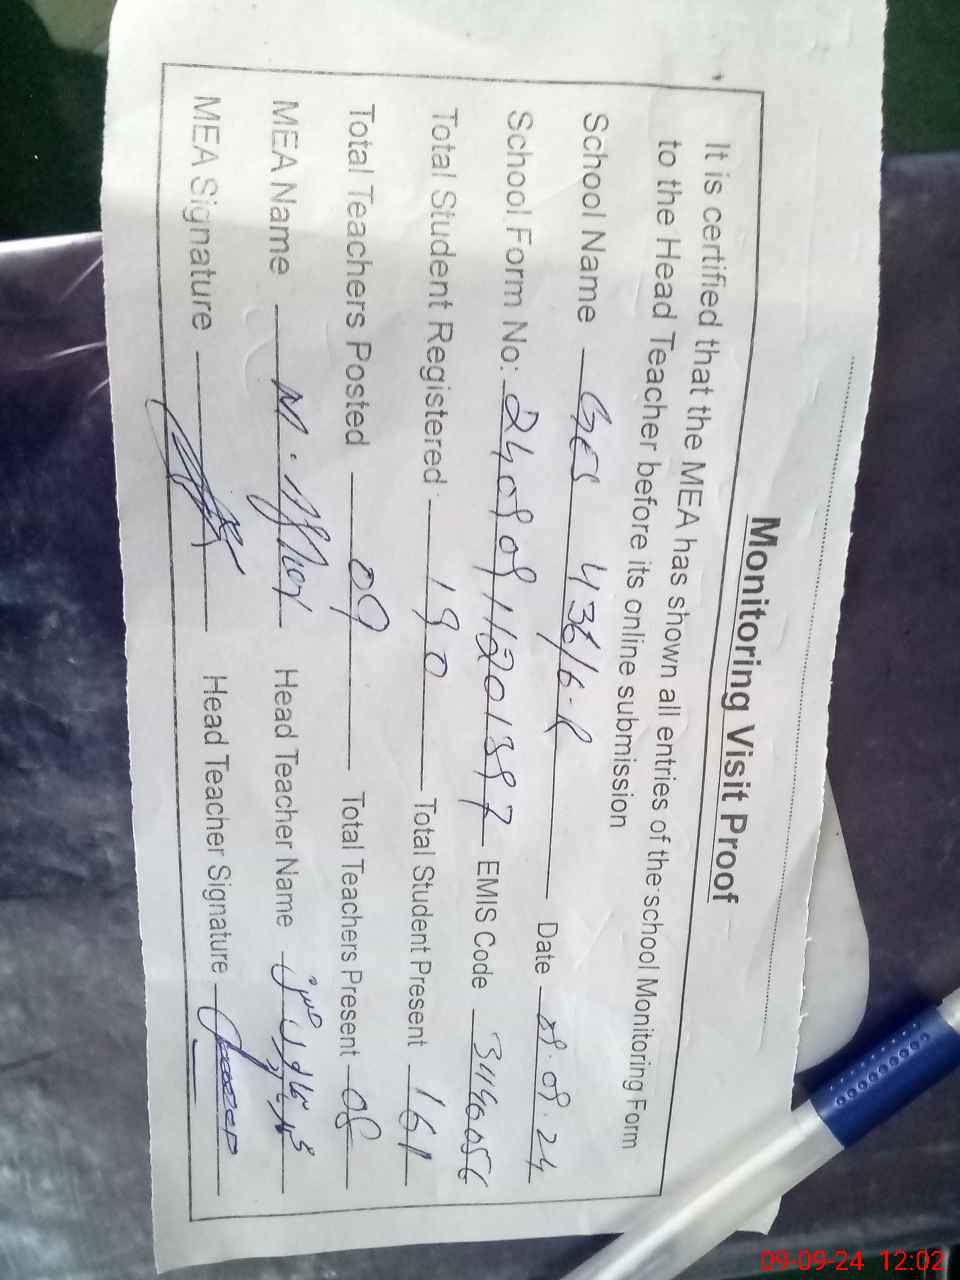 Monitoring Visit Proof
It is certified that the MEA has shown all entries of the school Monitoring Form
to the Head Teacher before its online submission
School Name GES 436/6-R Date 09.09.24
School Form No: 24090911201397 EMIS Code
Total Student Registered 190 Total Student Present 161
Total Teachers Posted 09 Total Teachers Present 08
MEA Name M. Head Teacher Name
MEA Signature Head Teacher Signature
09-09-24 12:02